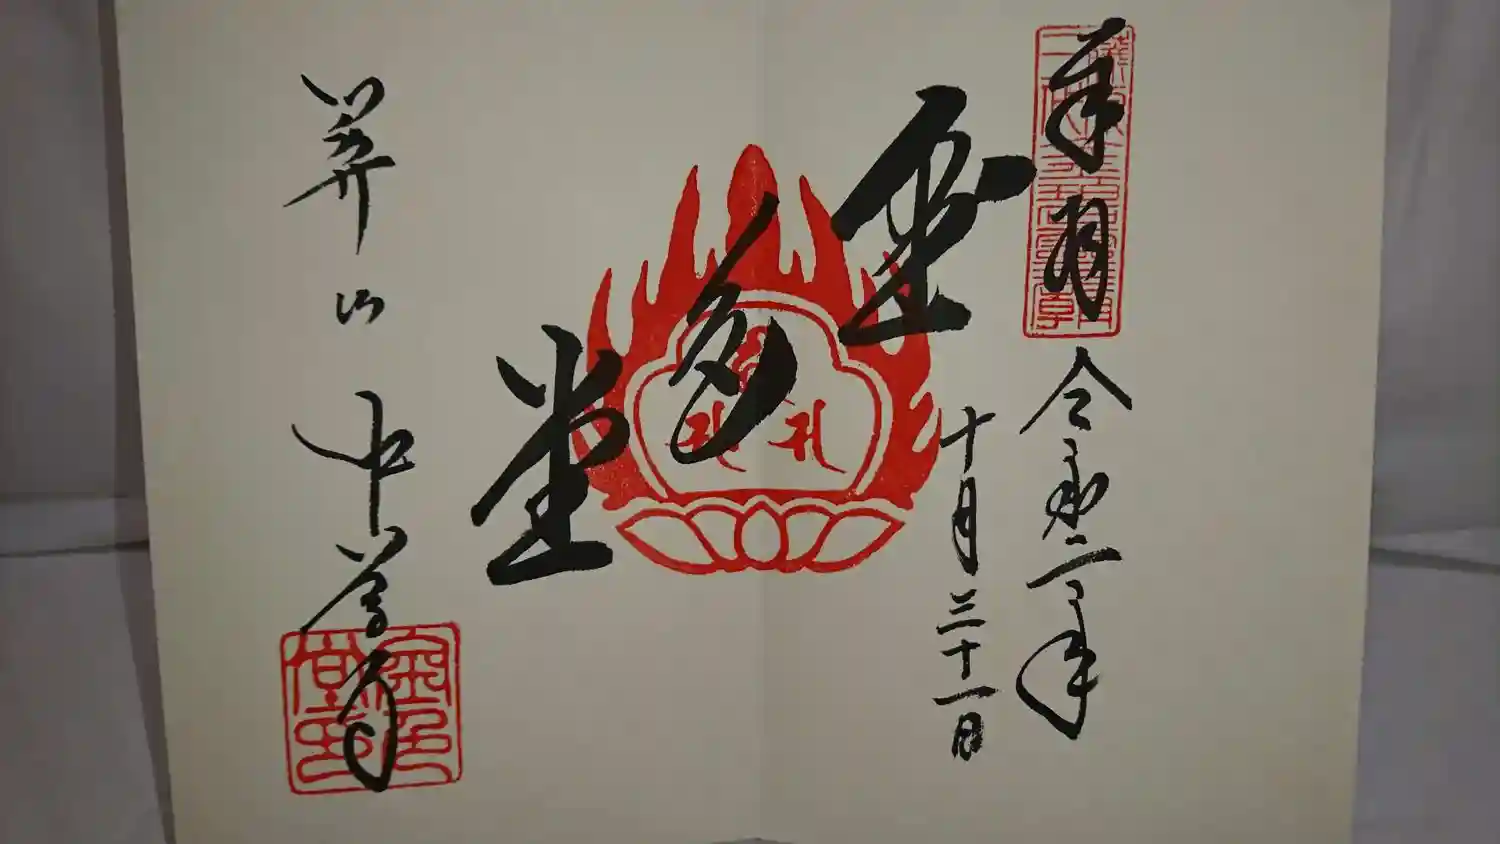 奉拝
令和二年
十月三十一日
金色堂
関山 中尊寺
金色
堂印